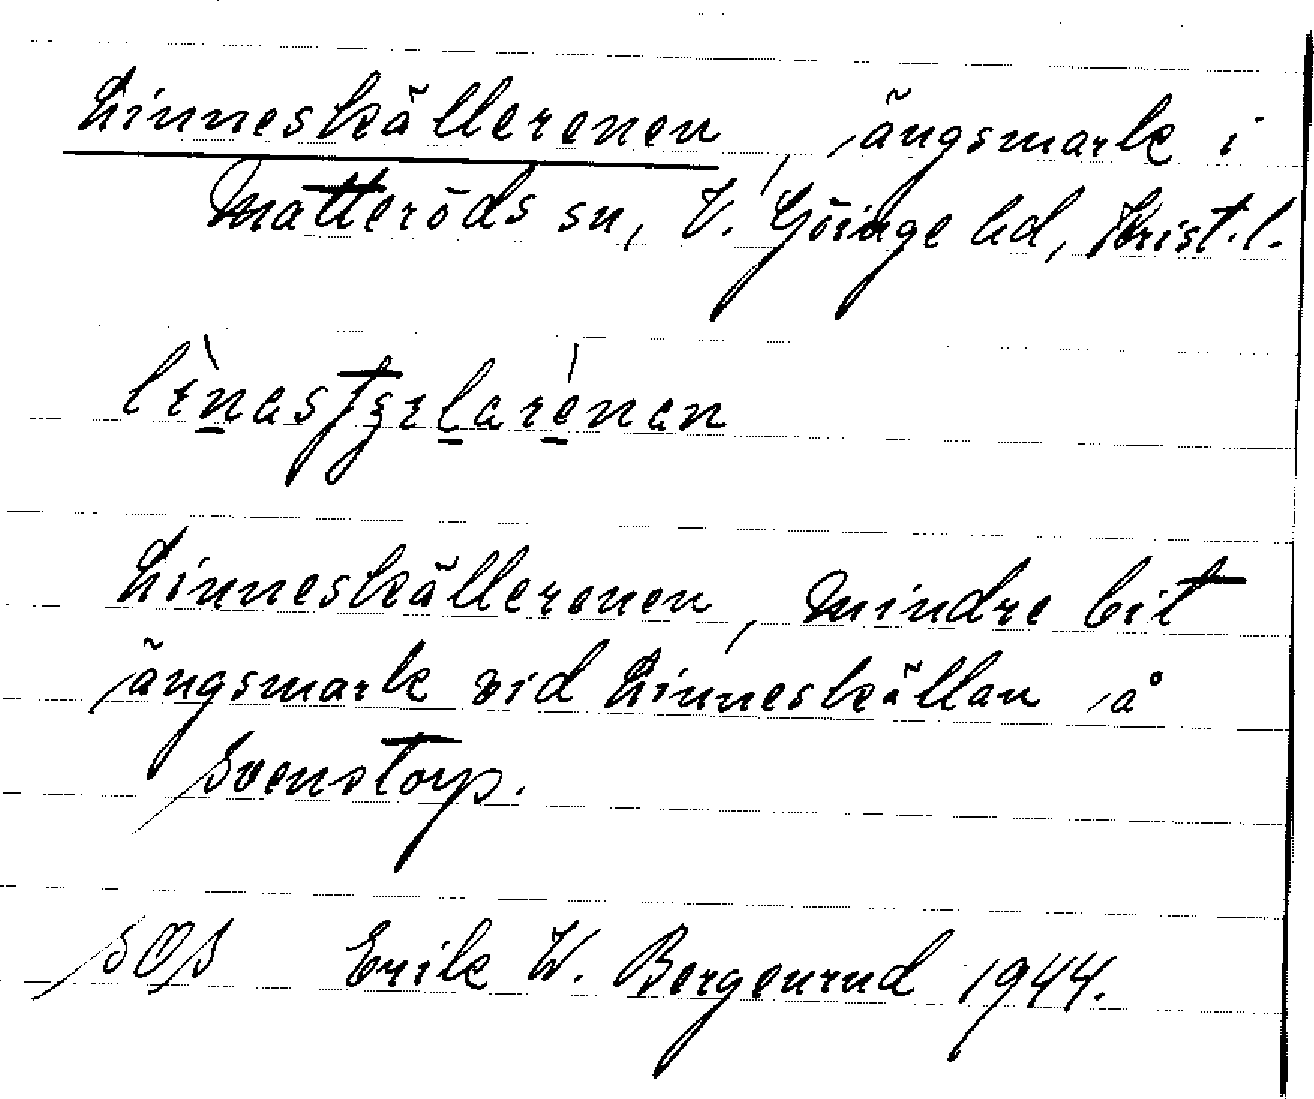 Linneskällerenen, ängsmark i
Matteröds sn, V. Göinge hd, Krist.l.
Linneskällerenen, mindre bit
ängsmark vid Linneskällan å
Svenstorp.
Erik W. Bergenrud 1944.